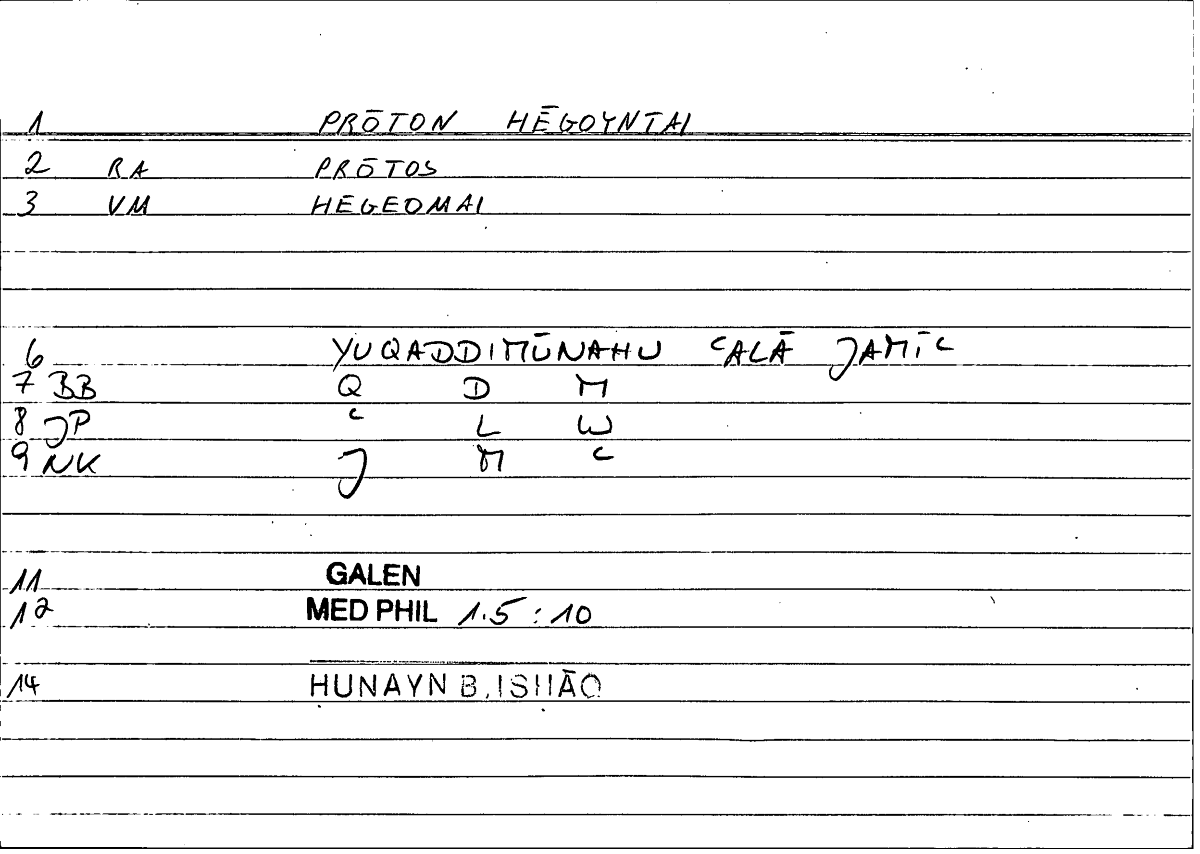 1 PRŌTON HĒGOYNTAI
2 RA PRŌTOS
3 VM HEGEOMAI
6 YUQADDIMŪNAHU ʿALĀ JAMĪʿ
7 BB Q D M
8 JP ʿ L W
9 NK J M ʿ
11 GALEN
12 MED PHIL 1.5 : 10
14 HUNAYN B. ISHĀQ